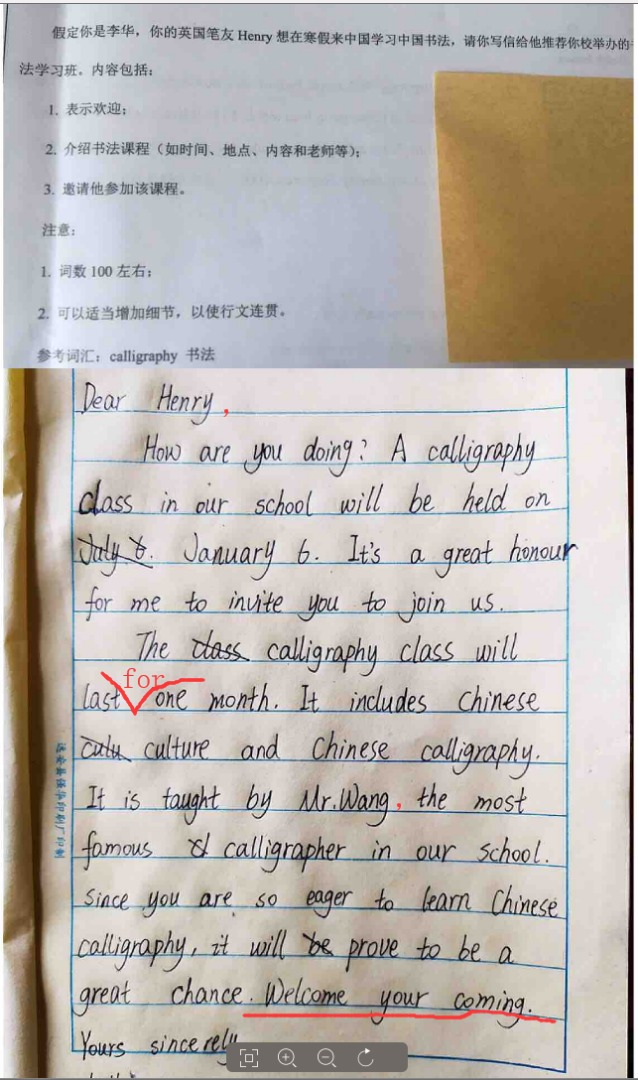 假定你是李华，你的英国笔友 Henry 想在寒假来中国学习中国书法，请你写信给他推荐你校举办的
法学习班。内容包括：
1. 表示欢迎；
2. 介绍书法课程（如时间、地点、内容和老师等）；
3. 邀请他参加该课程。
注意：
1. 词数 100 左右；
2. 可以适当增加细节，以使行文连贯。
参考词汇：calligraphy 书法
Dear Henry,
How are you doing? A calligraphy
class in our school will be held on
July 6. January 6. It's a great honour
for me to invite you to join us.
The class calligraphy class will
for
last one month. It includes Chinese
culu culture and Chinese calligraphy.
It is taught by Mr.Wang, the most
famous calligrapher in our school.
Since you are so eager to learn Chinese
calligraphy, it will be prove to be a
great chance. Welcome your coming.
Yours sincerely
远安县强华印刷厂印制